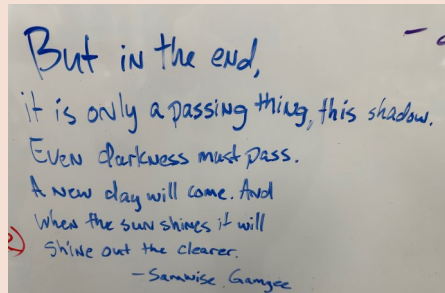 But in the end,
it is only a passing thing, this shadow.
Even darkness must pass.
A new day will come. And
when the sun shines it will
shine out the clearer.
- Samwise Gamgee